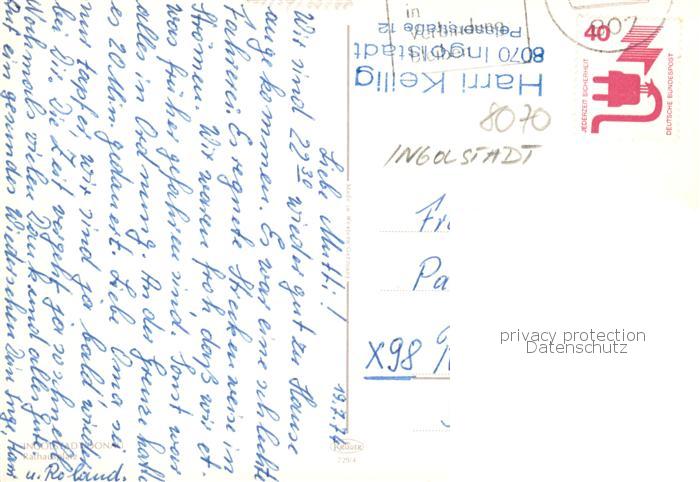 19.7.74
Liebe Mutti!
Wir sind 22 30 wieder gut zu Hause
angekommen. Es war eine schlechte
Fahrerei. Es regnete streckenweise in
Strömen. Wir waren froh daß wir et.
was früher gefahren sind. Sonst war
alles in Ordnung. An der Grenze hat
es 20 Min gedauert. Liebe Oma sei
nur tapfer wir sind ja bald wieder
bei Dir. Die Zeit vergeht so schnell
Nochmals vielen Dank und alles gute
auf ein gesundes Wiedersehen
u. Roland.
INGOLSTADT/DONAU
Rathausplatz
KRÜGER
729/4
Harri Keilig
8070 Ingolstadt
Peisserstraße 12
807
40
JEDERZEIT SICHERHEIT
DEUTSCHE BUNDESPOST
8070
INGOLSTADT
Fr
Pa
X98
privacy protection
Datenschutz